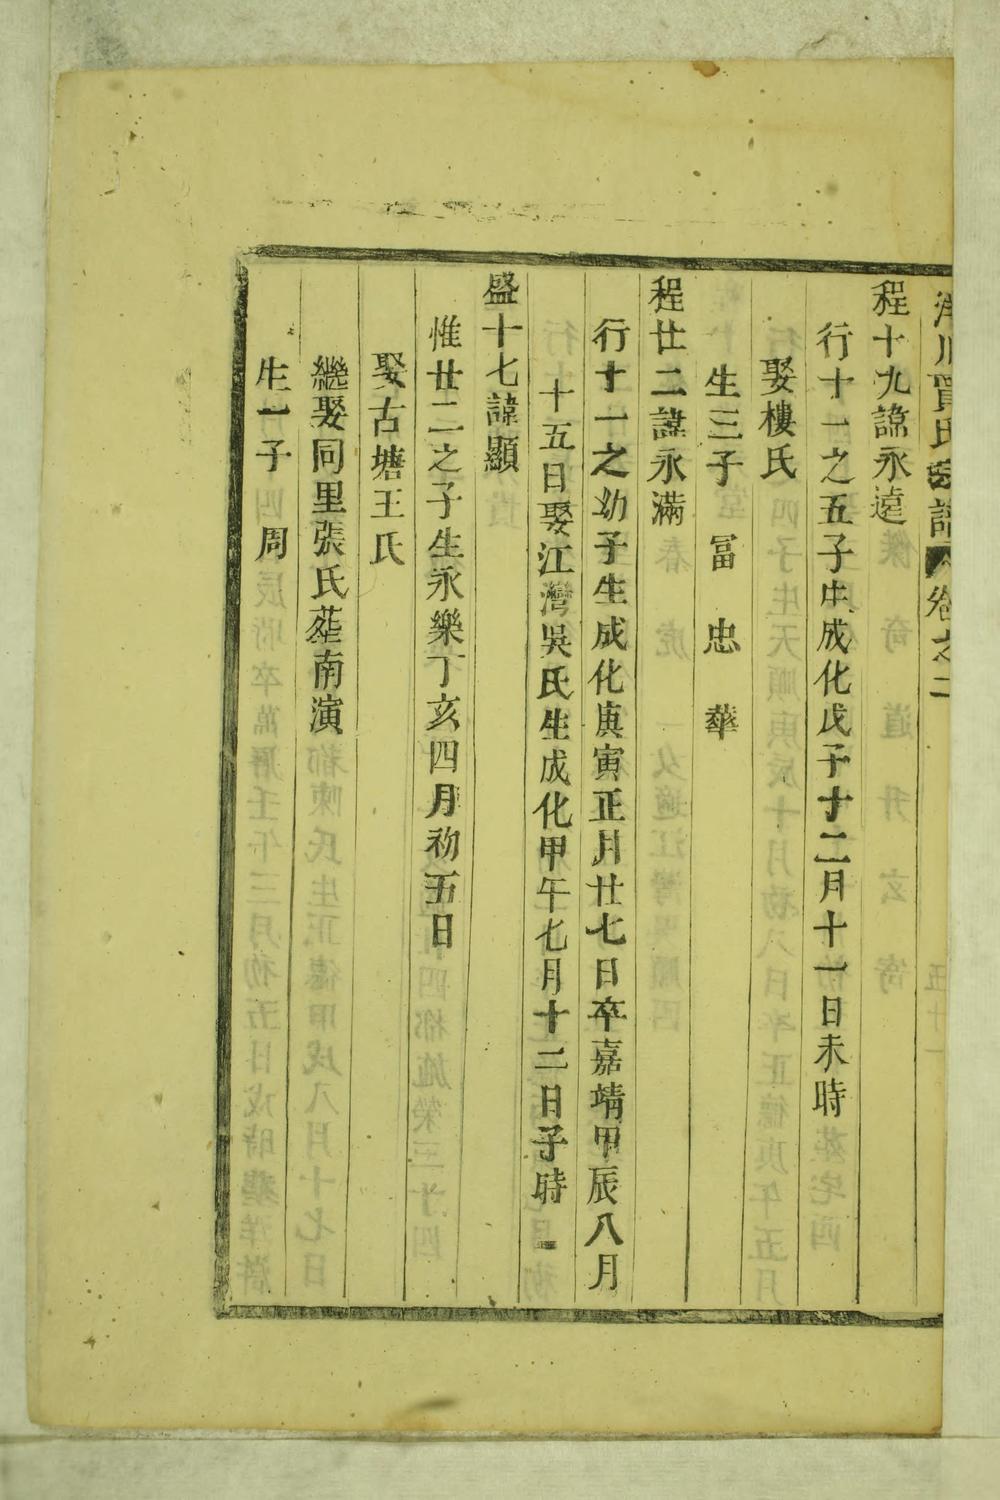 川賈氏宗譜 卷之二
程十九諱永遠
行十一之五子生成化戊子十二月十一日未時
娶樓氏
生三子 冨 忠 華
程廿二諱永滿
行十一之幼子生成化庚寅正月廿七日卒嘉靖甲辰八月
十五日娶江灣吳氏生成化甲午七月十二日子時
盛十七諱顯
惟廿二之子生永樂丁亥四月初五日
娶古塘王氏
繼娶同里張氏葬南演
生一子 周